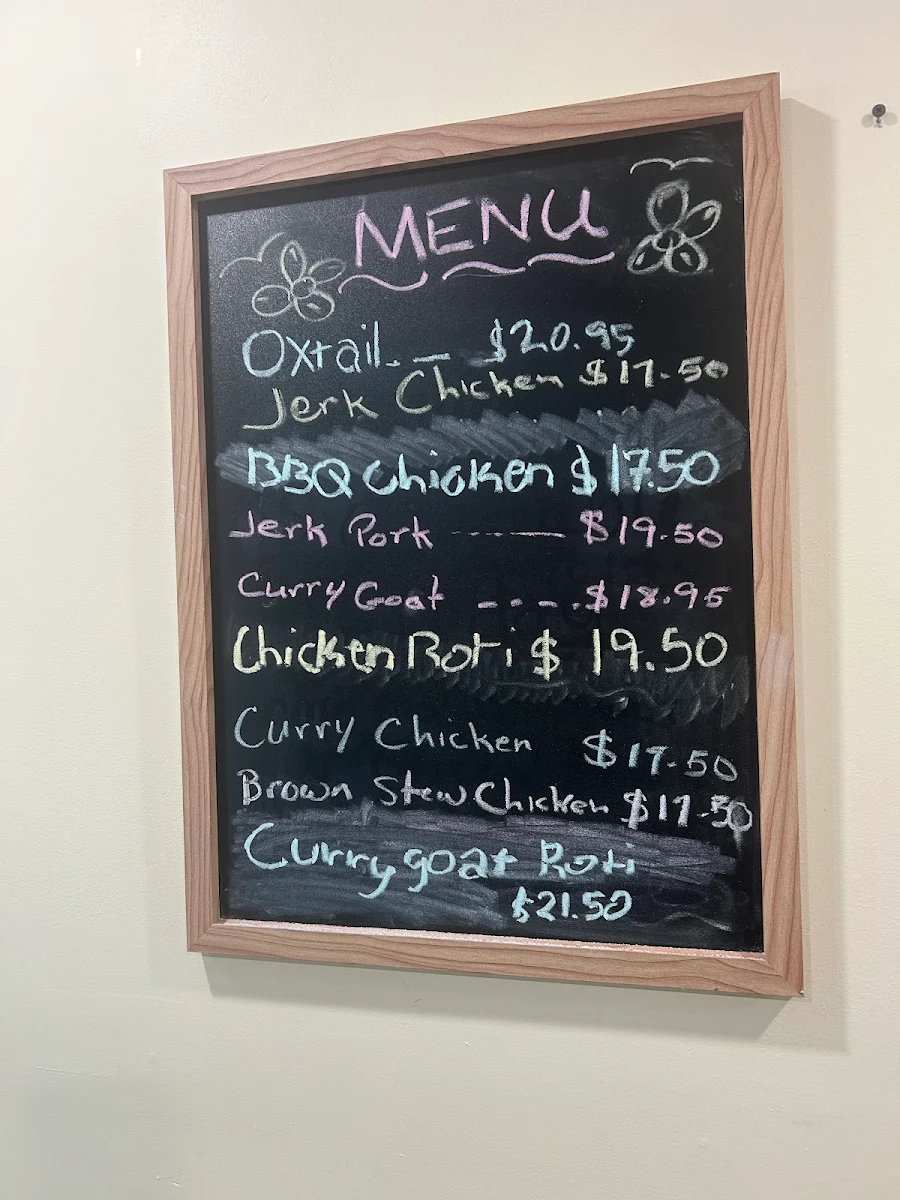 MENU
Oxtail. _ $20.95
Jerk Chicken $17.50
BBQ Chicken $17.50
Jerk Pork ------ $19.50
Curry Goat - - - . $18.95
Chicken Roti $ 19.50
Curry Chicken $17.50
Brown Stew Chicken $17.50
Curry goat Roti
$21.50